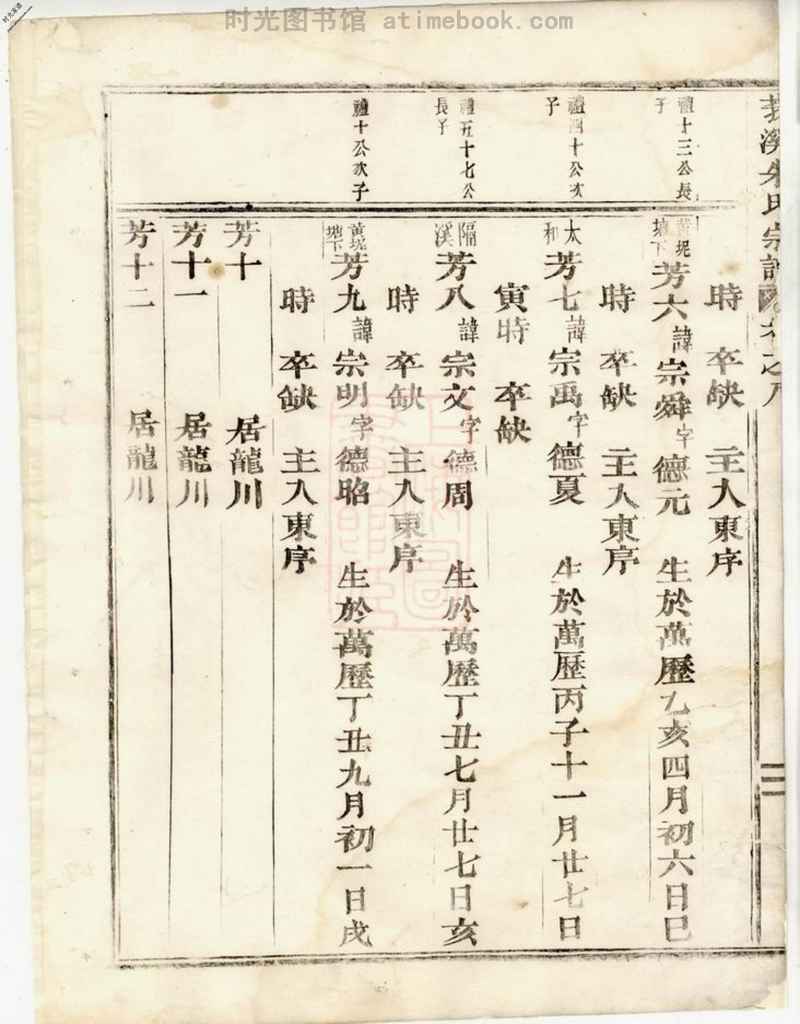 时光图书馆 atimebook.com
溪朱氏宗譜 卷之八
二
時 卒缺 主入東序
禮十三公長子
黃坭塘下 芳六諱宗舜字德元 生於萬歷乙亥四月初六日巳
時 卒缺 主入東序
禮四十公次子
太和 芳七諱宗禹字德夏 生於萬歷丙子十一月廿七日
寅時 卒缺
禮五十七公長子
隔溪 芳八諱宗文字德周 生於萬歷丁丑七月廿七日亥
時 卒缺 主入東序
禮十公次子
黃坭塘下 芳九諱宗明字德昭 生於萬歷丁丑九月初一日戌
時 卒缺 主入東序
芳十 居龍川
芳十一 居龍川
芳十二 居龍川